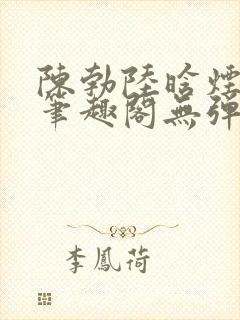 陳勃陸晗煙
筆趣閣無彈
李鳳荷